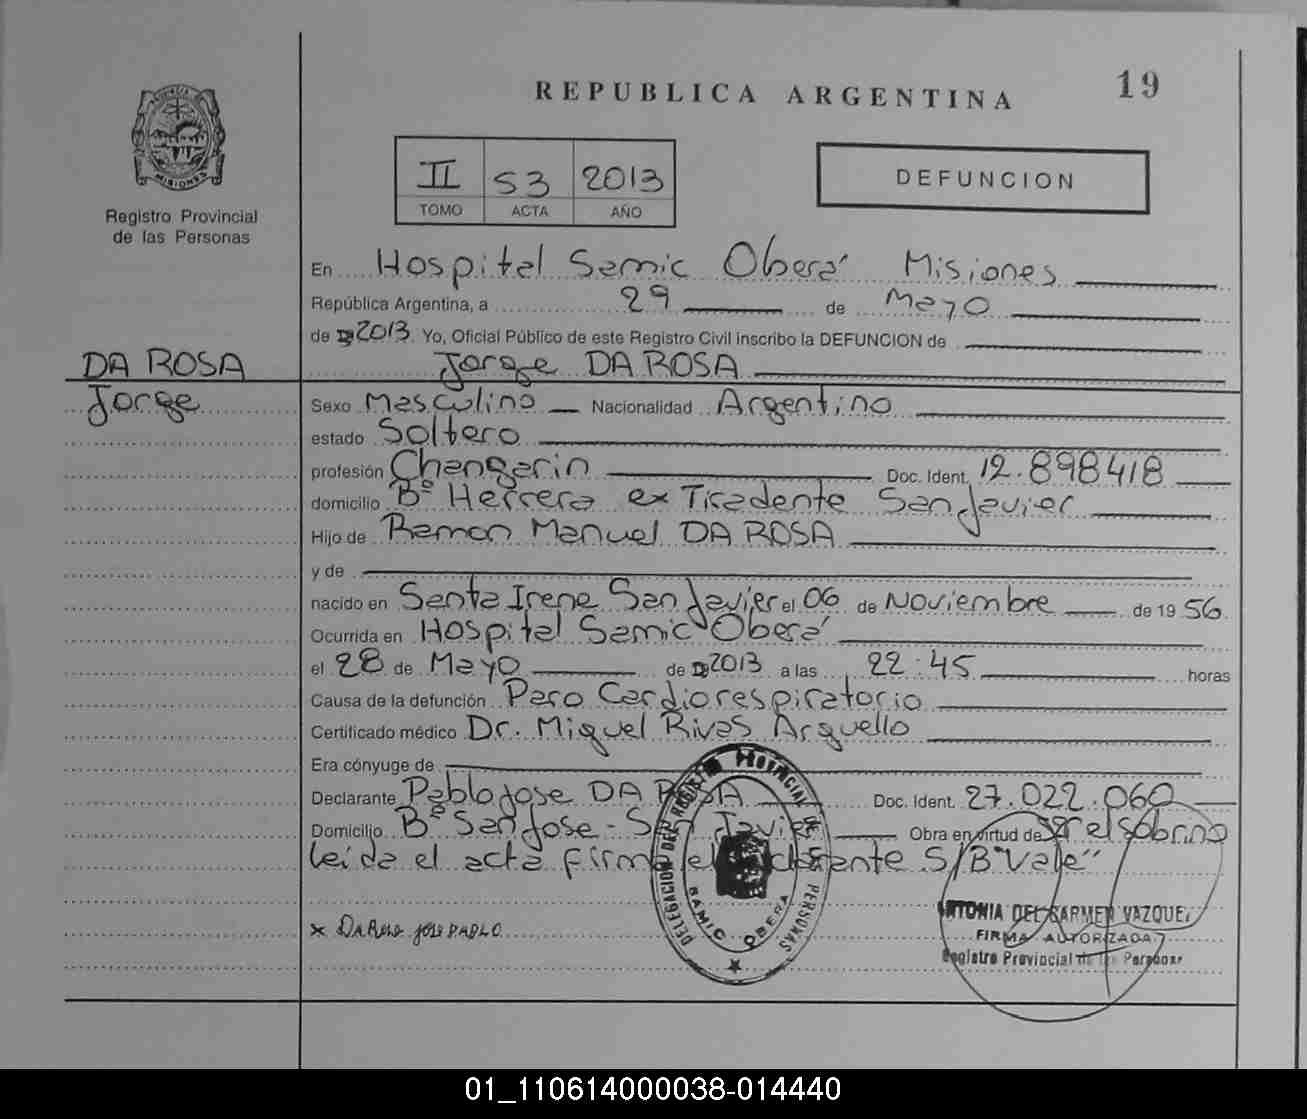 REPUBLICA ARGENTINA
19
MISIONES
Registro Provincial
de las Personas
II 53 2013
TOMO ACTA AÑO
DEFUNCION
En Hospital Samic Oberá Misiones
República Argentina, a 29 de Mayo
de 2013 Yo, Oficial Público de este Registro Civil inscribo la DEFUNCION de
Jorge DA ROSA
DA ROSA
Jorge
Sexo Masculino Nacionalidad Argentino
estado Soltero
profesión Changarin Doc. Ident. 12.898418
domicilio Bº Herrera ex Tiradente San Javier
Hijo de Ramon Manuel DA ROSA
y de
nacido en Santa Irene San Javier el 06 de Noviembre de 19 56
Ocurrida en Hospital Samic Oberá
el 28 de Mayo de 2013 a las 22:45 horas
Causa de la defunción Paro Cardiorespiratorio
Certificado médico Dr. Miguel Rivas Arguello
Era cónyuge de
Declarante Pablo Jose DA ROSA Doc. Ident. 27.022.060
Domicilio Bº San Jose - San Javier Obra en virtud de ser el sobrino
leida el acta firma el declarante S/B "Vale"
x DA ROSA JOSE PABLO
DELEGACION DEL REGISTRO PROVINCIAL DE LAS PERSONAS
SAMIC OBERA
ANTONIA DEL CARMEN VAZQUEZ
FIRMA AUTORIZADA
Registro Provincial de las Personas
01_110614000038-014440